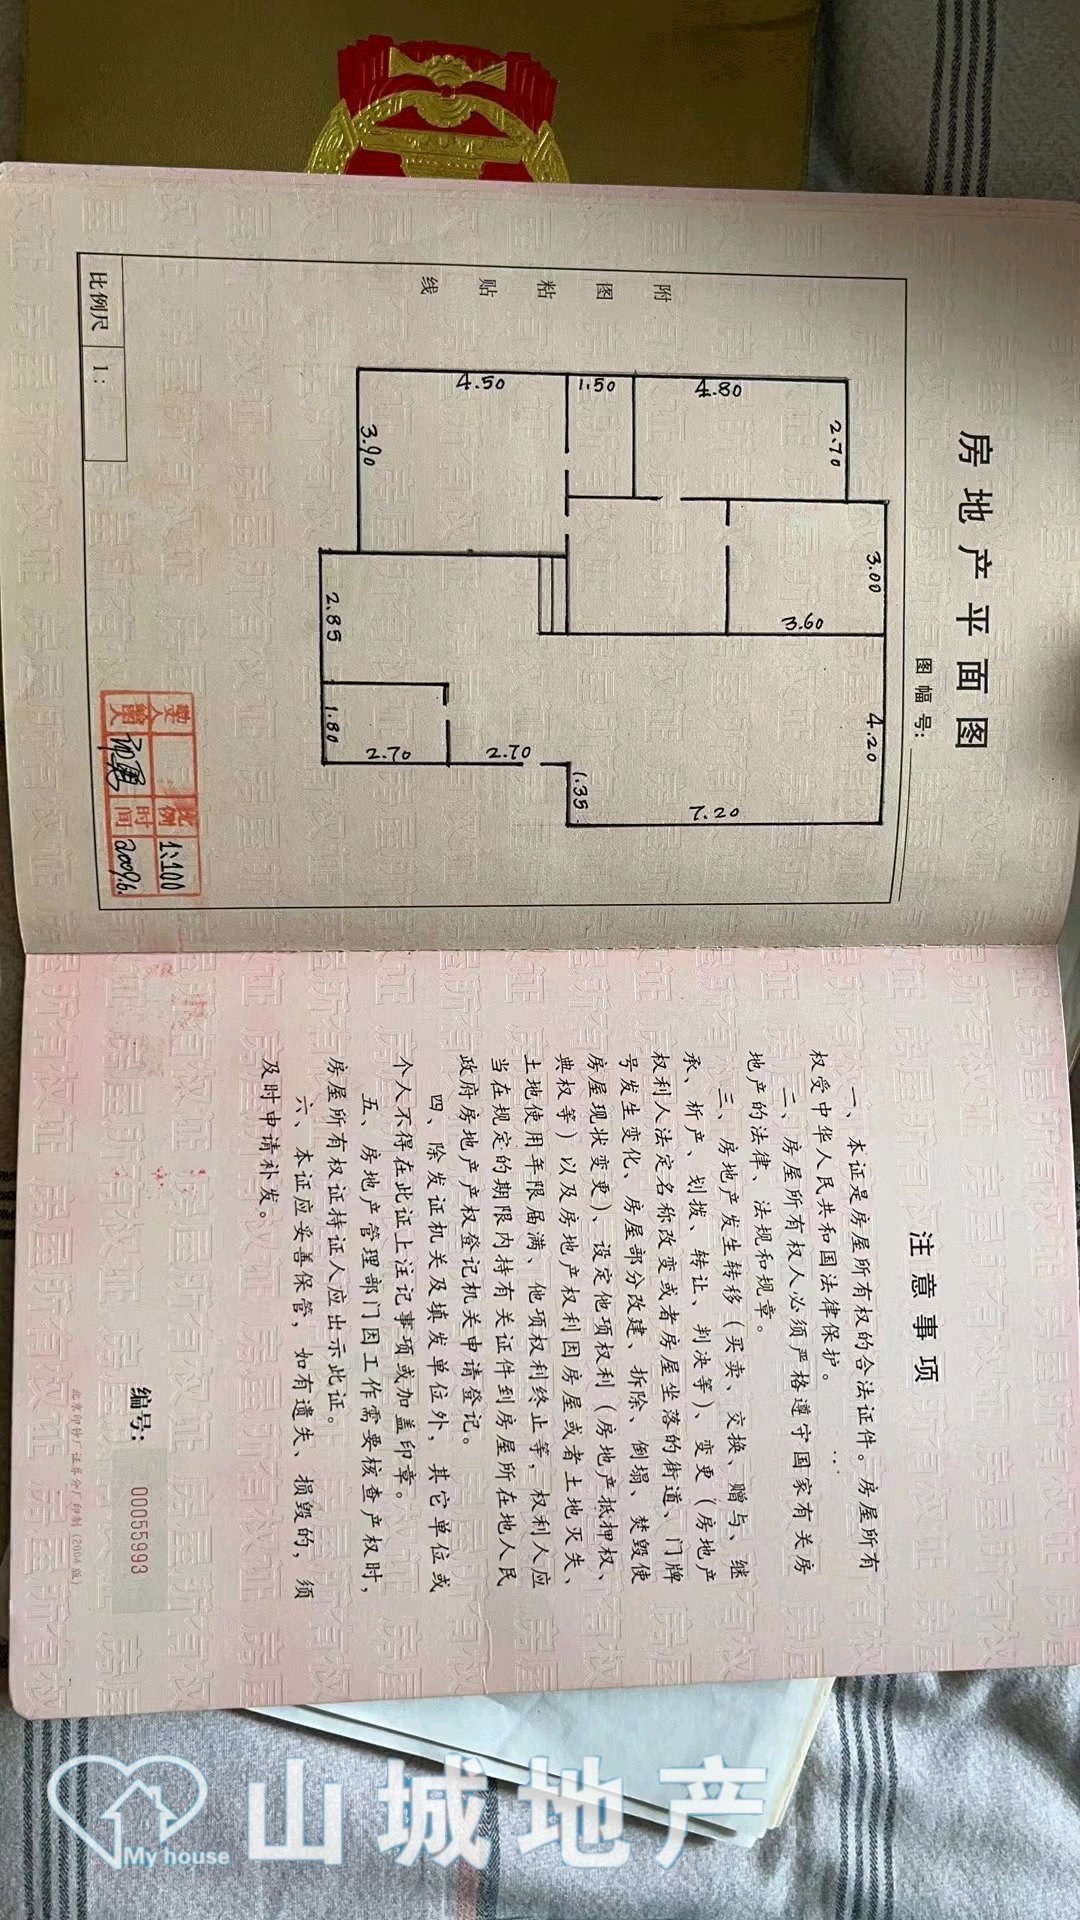 房地产平面图
图幅号:
附图粘贴线
4.50
1.50
4.80
2.70
3.90
3.00
3.60
2.85
4.20
1.80
2.70
2.70
1.35
7.20
比例尺
1:
比例
1:100
时间
2009.6.
注意事项
一、本证是房屋所有权的合法证件。房屋所有
权受中华人民共和国法律保护。
二、房屋所有权人必须严格遵守国家有关房
地产的法律、法规和规章。
三、房地产发生转移（买卖、交换、赠与、继
承、析产、划拨、转让、判决等）、变更（房地产
权利人法定名称改变或者房屋坐落的街道、门牌
号发生变化、房屋部分改建、拆除、倒塌、焚毁使
房屋现状变更）、设定他项权利（房地产抵押权、
典权等）以及房地产权利因房屋或者土地灭失、
土地使用年限届满、他项权利终止等，权利人应
当在规定的期限内持有关证件到房屋所在地人民
政府房地产产权登记机关申请登记。
四、除发证机关及填发单位外，其它单位或
个人不得在此证上注记事项或加盖印章。
五、房地产管理部门因工作需要核查产权时，
房屋所有权证持证人应出示此证。
六、本证应妥善保管，如有遗失、损毁的，须
及时申请补发。
编号: 00055993
北京印钞厂证券分厂印制（2004版）
My house
山城地产